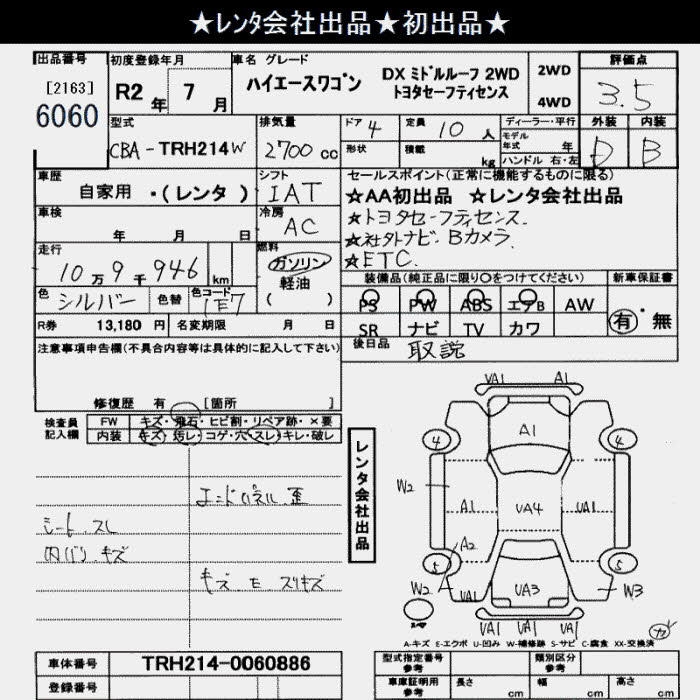 ★ﾚﾝﾀ会社出品★初出品★
出品番号 初度登録年月 車名 グレード 評価点
[2163]
6060
R2年 7月
ハイエースワゴン DX ミドルルーフ 2WD
トヨタセーフティセンス
2WD
4WD
3.5
型式 排気量 ドア 4 定員 10人 ディーラー・平行 外装 内装
CBA-TRH214W 2700cc
形状 積載 kg
モデル年式 年
ハンドル 右・左
D B
車歴 シフト セールスポイント(正常に機能するものに限る)
自家用・(レンタ) IAT
★AA初出品 ★レンタ会社出品
★トヨタセーフティセンス.
★社外ナビ.Bカメラ.
★ETC.
車検 年 月 日 冷房 AC
走行 10万9千946km
燃料 ガソリン
軽油
( )
装備品(純正品に限り○をつけてください) 新車保証書
PS PW ABS エアB AW
SR ナビ TV カワ
有・無
色 シルバー 色替 色コード 1E7
R券 13,180 円 名変期限 月 日
後日品 取説
注意事項申告欄(不具合内容等は具体的に記入して下さい)
修復歴 有 [箇所 ]
検査員記入欄
FW キズ・飛石・ヒビ割・リペア跡・×要
内装 キズ・汚レ・コゲ・穴・スレ・キレ・破レ
エンドパネル.歪
シート.スレ
内バリ.キズ
キズ.E スリキズ
レンタ会社出品
UA1 A1
4 A1 4
W2 A1 UA4 UA1
A2
5 5
W2 UA1 UA3 W3
UA1 UA1 UA1
A-キズ E-エクボ U-凹み W-補修跡 S-サビ C-腐食 XX-交換済
車体番号 TRH214-0060886
登録番号
型式指定番号 参考 類別区分 参考
車庫証明用 参考 長さ cm 幅 cm 高さ cm